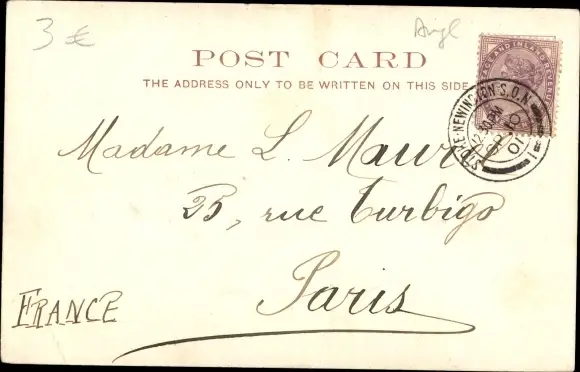 3 €
Angl
POST CARD
THE ADDRESS ONLY TO BE WRITTEN ON THIS SIDE
POSTAGE AND INLAND REVENUE
STOKE·NEWINGTON·S.O.N.
12.30PM
10
01
Madame L.
25, rue Turbigo
Paris
FRANCE